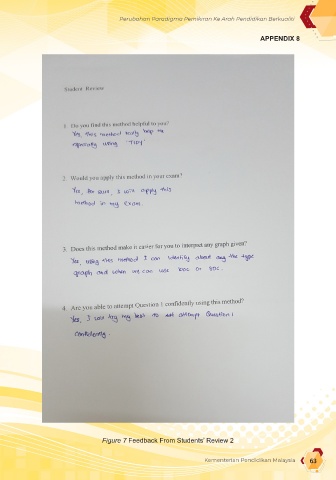 Perubahan Paradigma Pemikiran Ke Arah Pendidikan Berkualiti
APPENDIX 8
Student Review
1. Do you find this method helpful to you?
Yes, this method really help me
especially using "TIPY"
2. Would you apply this method in your exam?
Yes, for sure I will apply this
method in my exam.
3. Does this method make it easier for you to interpret any graph given?
Yes, using this method I can identify about any the type
graph and when we can use or SOC.
4. Are you able to attempt Question 1 confidently using this method?
Yes, I will try my best to attempt Question 1
confidently.
Figure 7 Feedback From Students' Review 2
Kementerian Pendidikan Malaysia
63